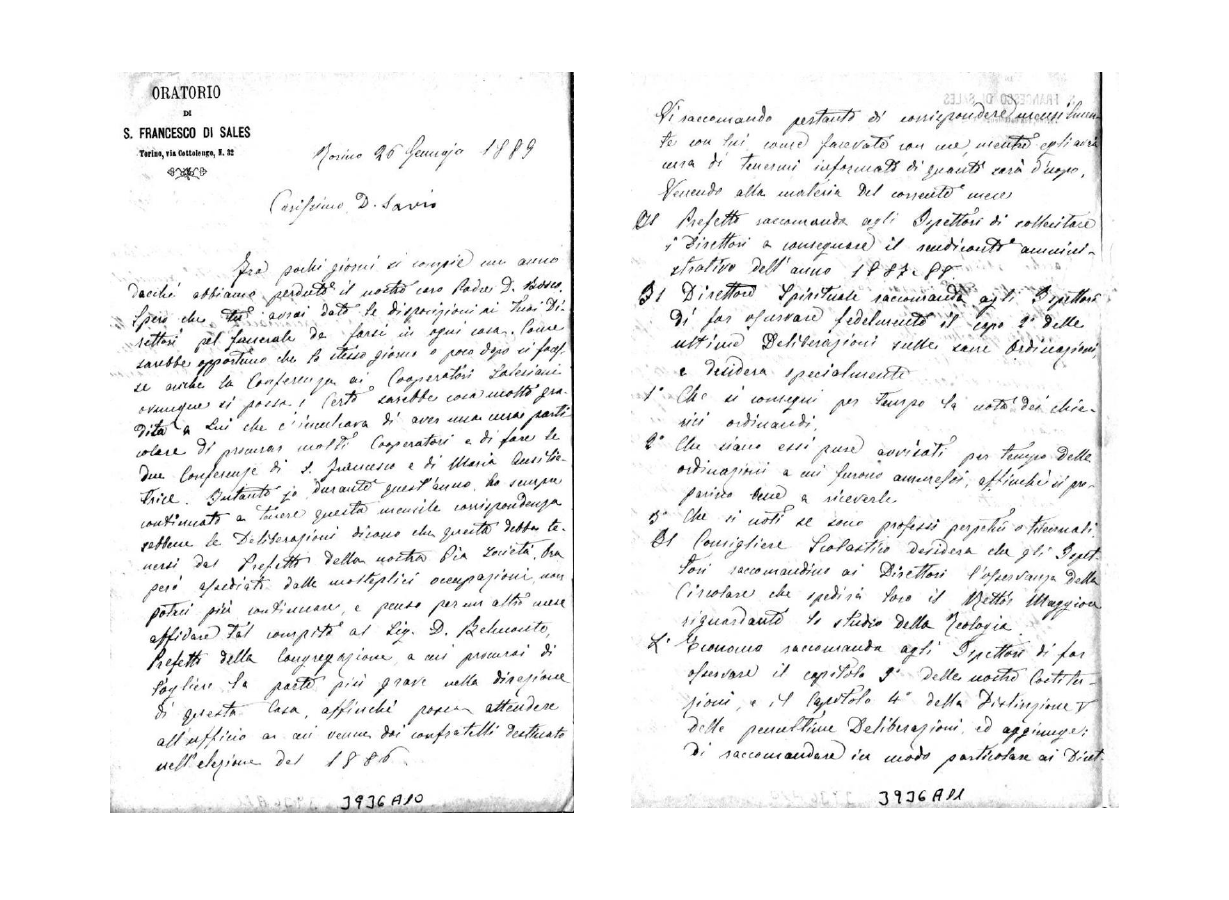 ORATORIO
DI
S. FRANCESCO DI SALES
Torino, via Cottolengo, N. 32
Torino 26 Gennajo 1889
Carissimo D. Savio
Fra pochi giorni si compie un anno
dacchè abbiamo perduto il nostro caro Padre D. Bosco.
Spero che tu avrai dato le disposizioni ai tuoi Di-
rettori pel funerale da farsi in ogni casa. Come
sarebbe opportuno che lo stesso giorno o poco dopo si faces-
se anche la Conferenza ai Cooperatori Salesiani
ovunque si possa! Certo sarebbe cosa molto gra-
dita a Lui che c'inculcava di aver una cura parti
colare di procurar molti Cooperatori e di fare le
due Conferenze di S. Francesco e di Maria Ausilia-
trice. Intanto io durante quest'anno ho sempre
continuato a tenere questa mensile corrispondenza
sebbene le Deliberazioni dicano che questa debba te-
nersi dal Prefetto della nostra Pia Società. Ora
però assediato dalle molteplici occupazioni non
potrei più continuare, e penso per un altro mese
affidare tal compito al Sig. D. Belmonte,
Prefetto della Congregazione, a cui procurai di
togliere la parte più grave nella direzione
di questa Casa, affinchè possa attendere
all'ufficio a cui venne dai confratelli destinato
nell'elezione del 1886.
3936A10
Vi raccomando pertanto di corrispondere mensilmen-
te con lui, come facevate con me mentre egli avrà
cura di tenermi informato di quanto sarà d'uopo.
Venendo alla materia del corrente mese
Il Prefetto raccomanda agli Ispettori di sollecitare
i Direttori a consegnare il rendiconto ammini-
strativo dell'anno 1887-88.
Il Direttore Spirituale raccomanda agli Ispettori
di far osservare fedelmente il capo 2° delle
ultime Deliberazioni sulle sacre Ordinazioni
e desidera specialmente
1° Che si consegni per tempo la nota dei chie-
rici ordinandi.
2° Che siano essi pure avvisati per tempo delle
ordinazioni a cui furono ammessi, affinchè si pre-
parino bene a riceverle
3° Che si noti se sono professi perpetui o triennali.
Il Consigliere Scolastico desidera che gli Ispet-
tori raccomandino ai Direttori l'osservanza della
Circolare che spedirà loro il Rettor Maggiore
riguardante lo studio della Teologia.
L' Economo raccomanda agli Ispettori di far
osservare il capitolo 9° delle nostre Costitu-
zioni, e il Capitolo 4° della Distinzione V
delle penultime Deliberazioni, ed aggiunge:
Di raccomandare in modo particolare ai Diret-
3936A11